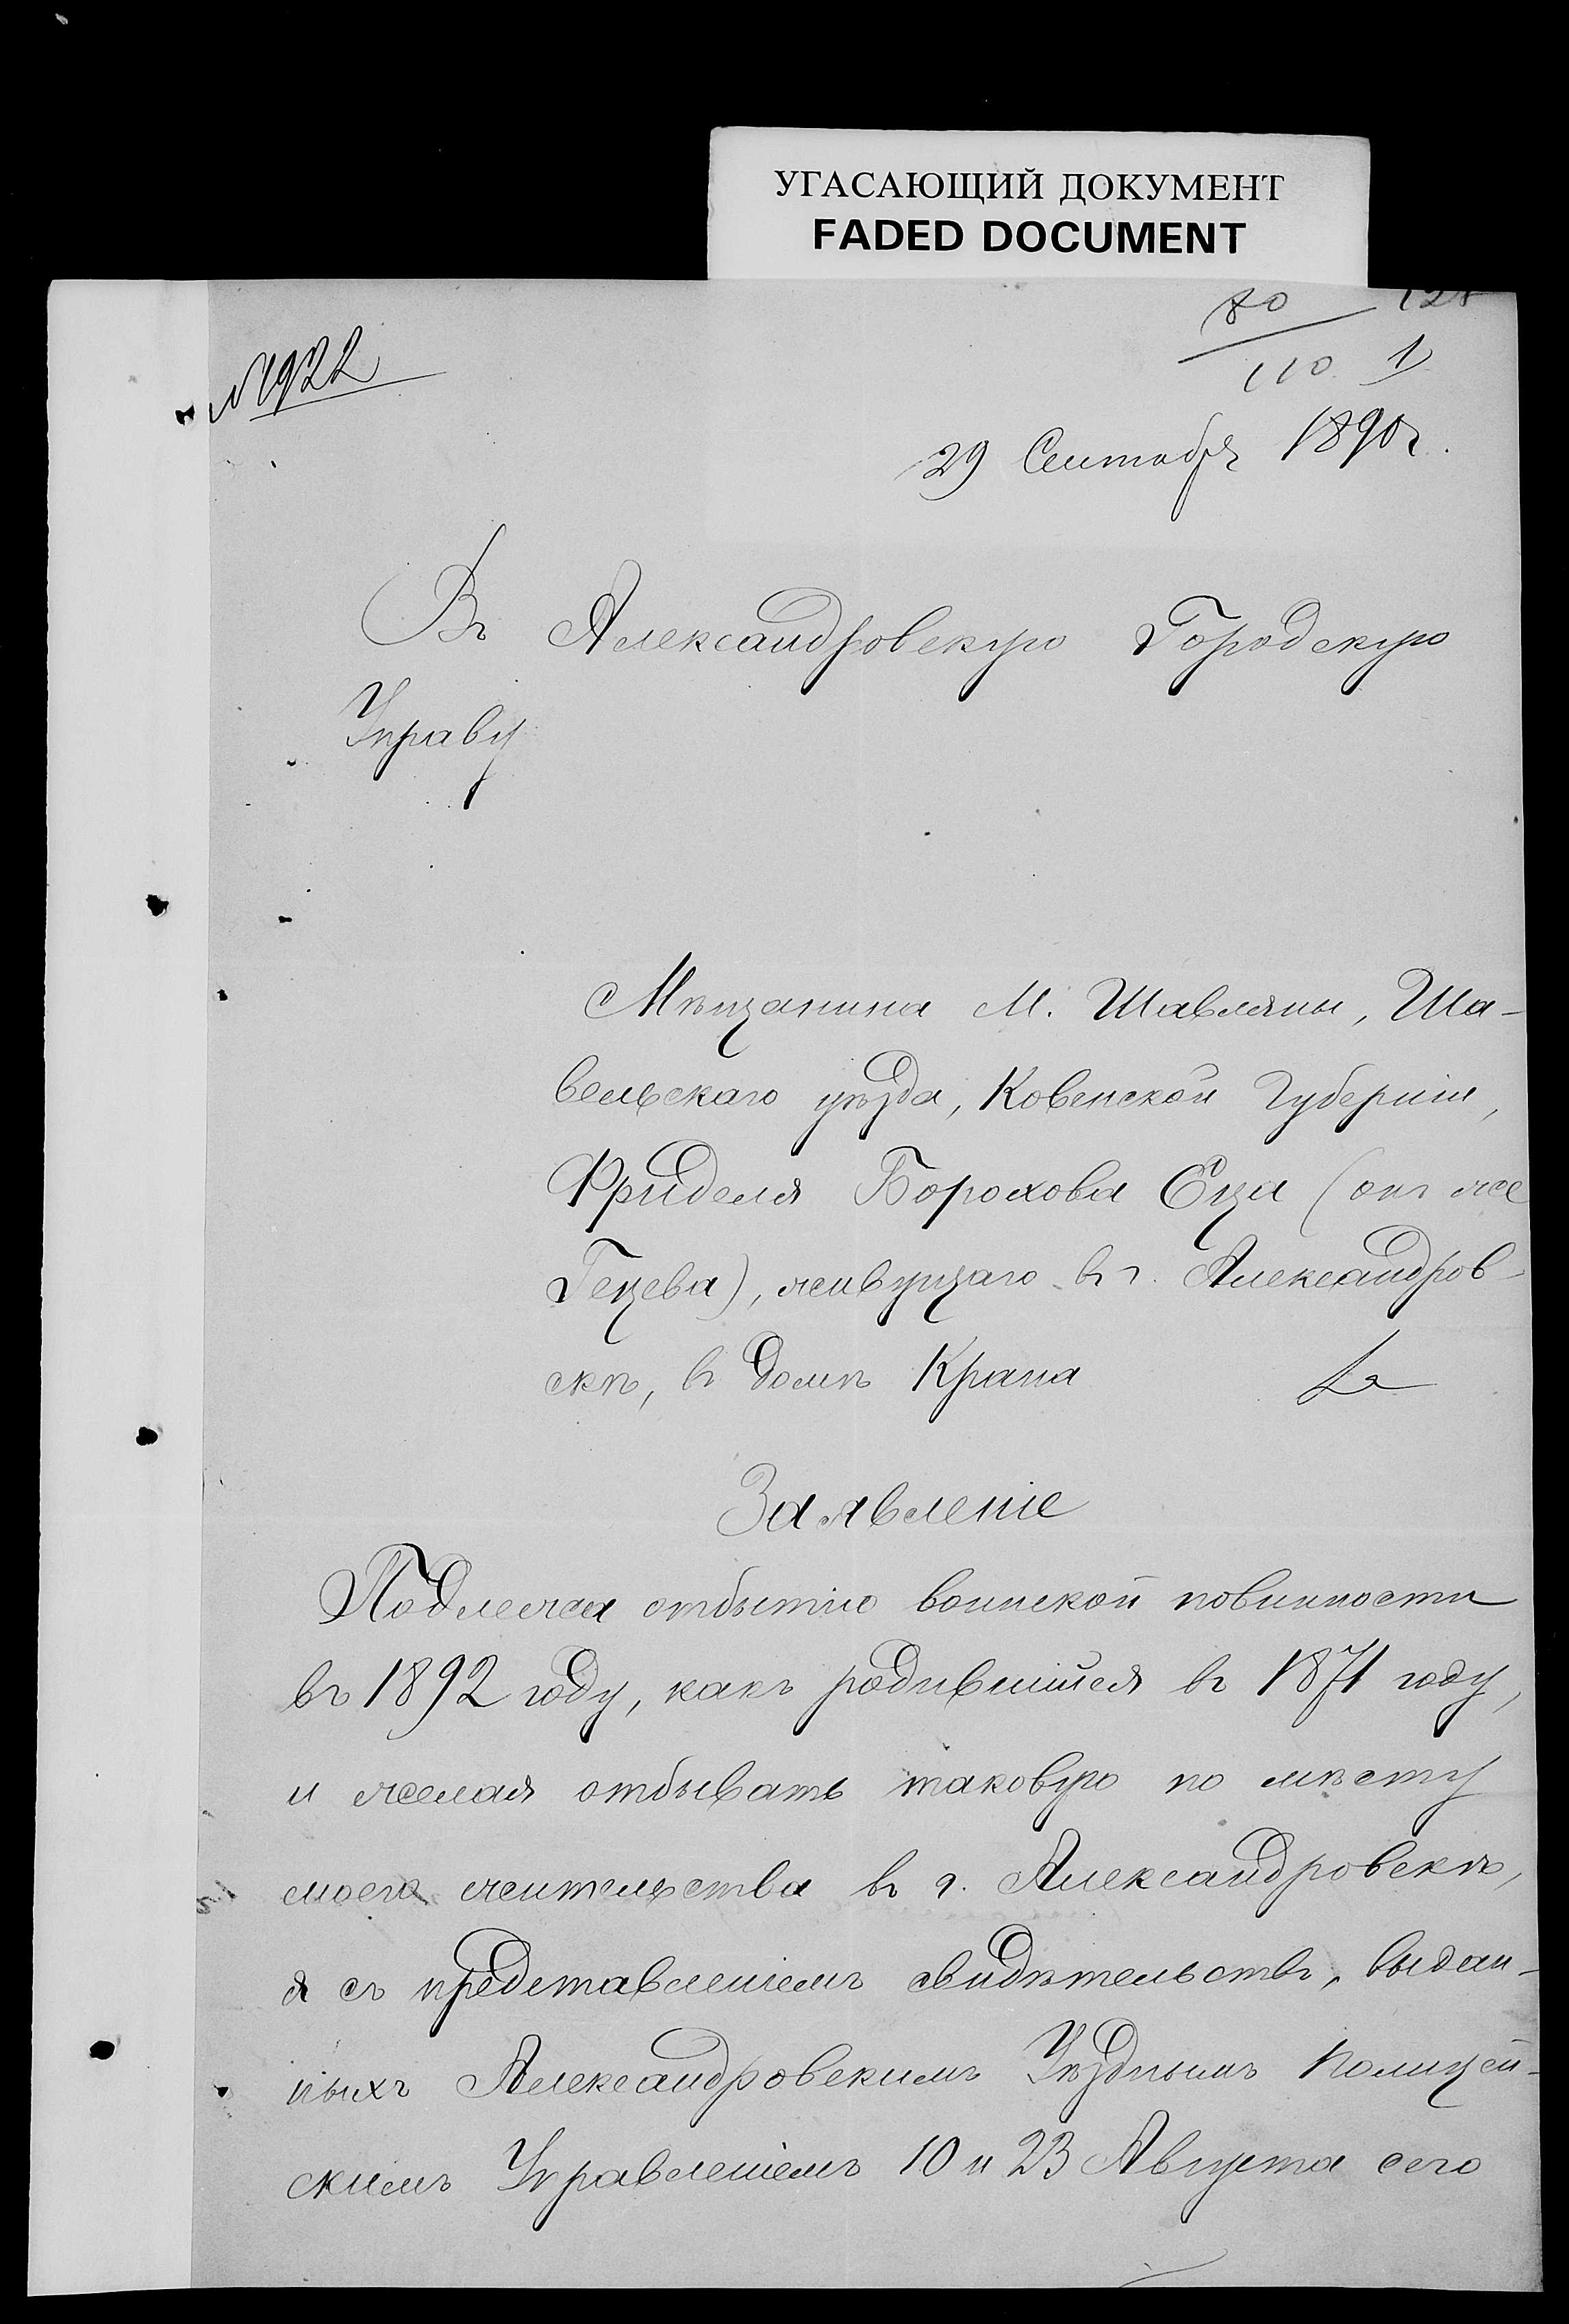 УГАСАЮЩИЙ ДОКУМЕНТ
FADED DOCUMENT
80
110 1
№ 1922
29 Сентября 1890 г.
Въ Александровскую Городскую
Управу
Мѣщанина М. Шавляны, Ша-
вельскаго уѣзда, Ковенской Губерніи,
Фриделя Борохова Еца (онъ же
Гецева), живущаго въ г. Александров-
скѣ, въ домѣ Крана
Заявленіе
Подлежа отбытію воинской повинности
въ 1892 году, какъ родившійся въ 1871 году,
и желая отбывать таковую по мѣсту
моего жительства въ г. Александровскѣ,
я съ представленіемъ свидѣтельствъ, выдан-
ныхъ Александровскимъ Уѣзднымъ Полицей-
скимъ Управленіемъ 10 и 23 Августа сего